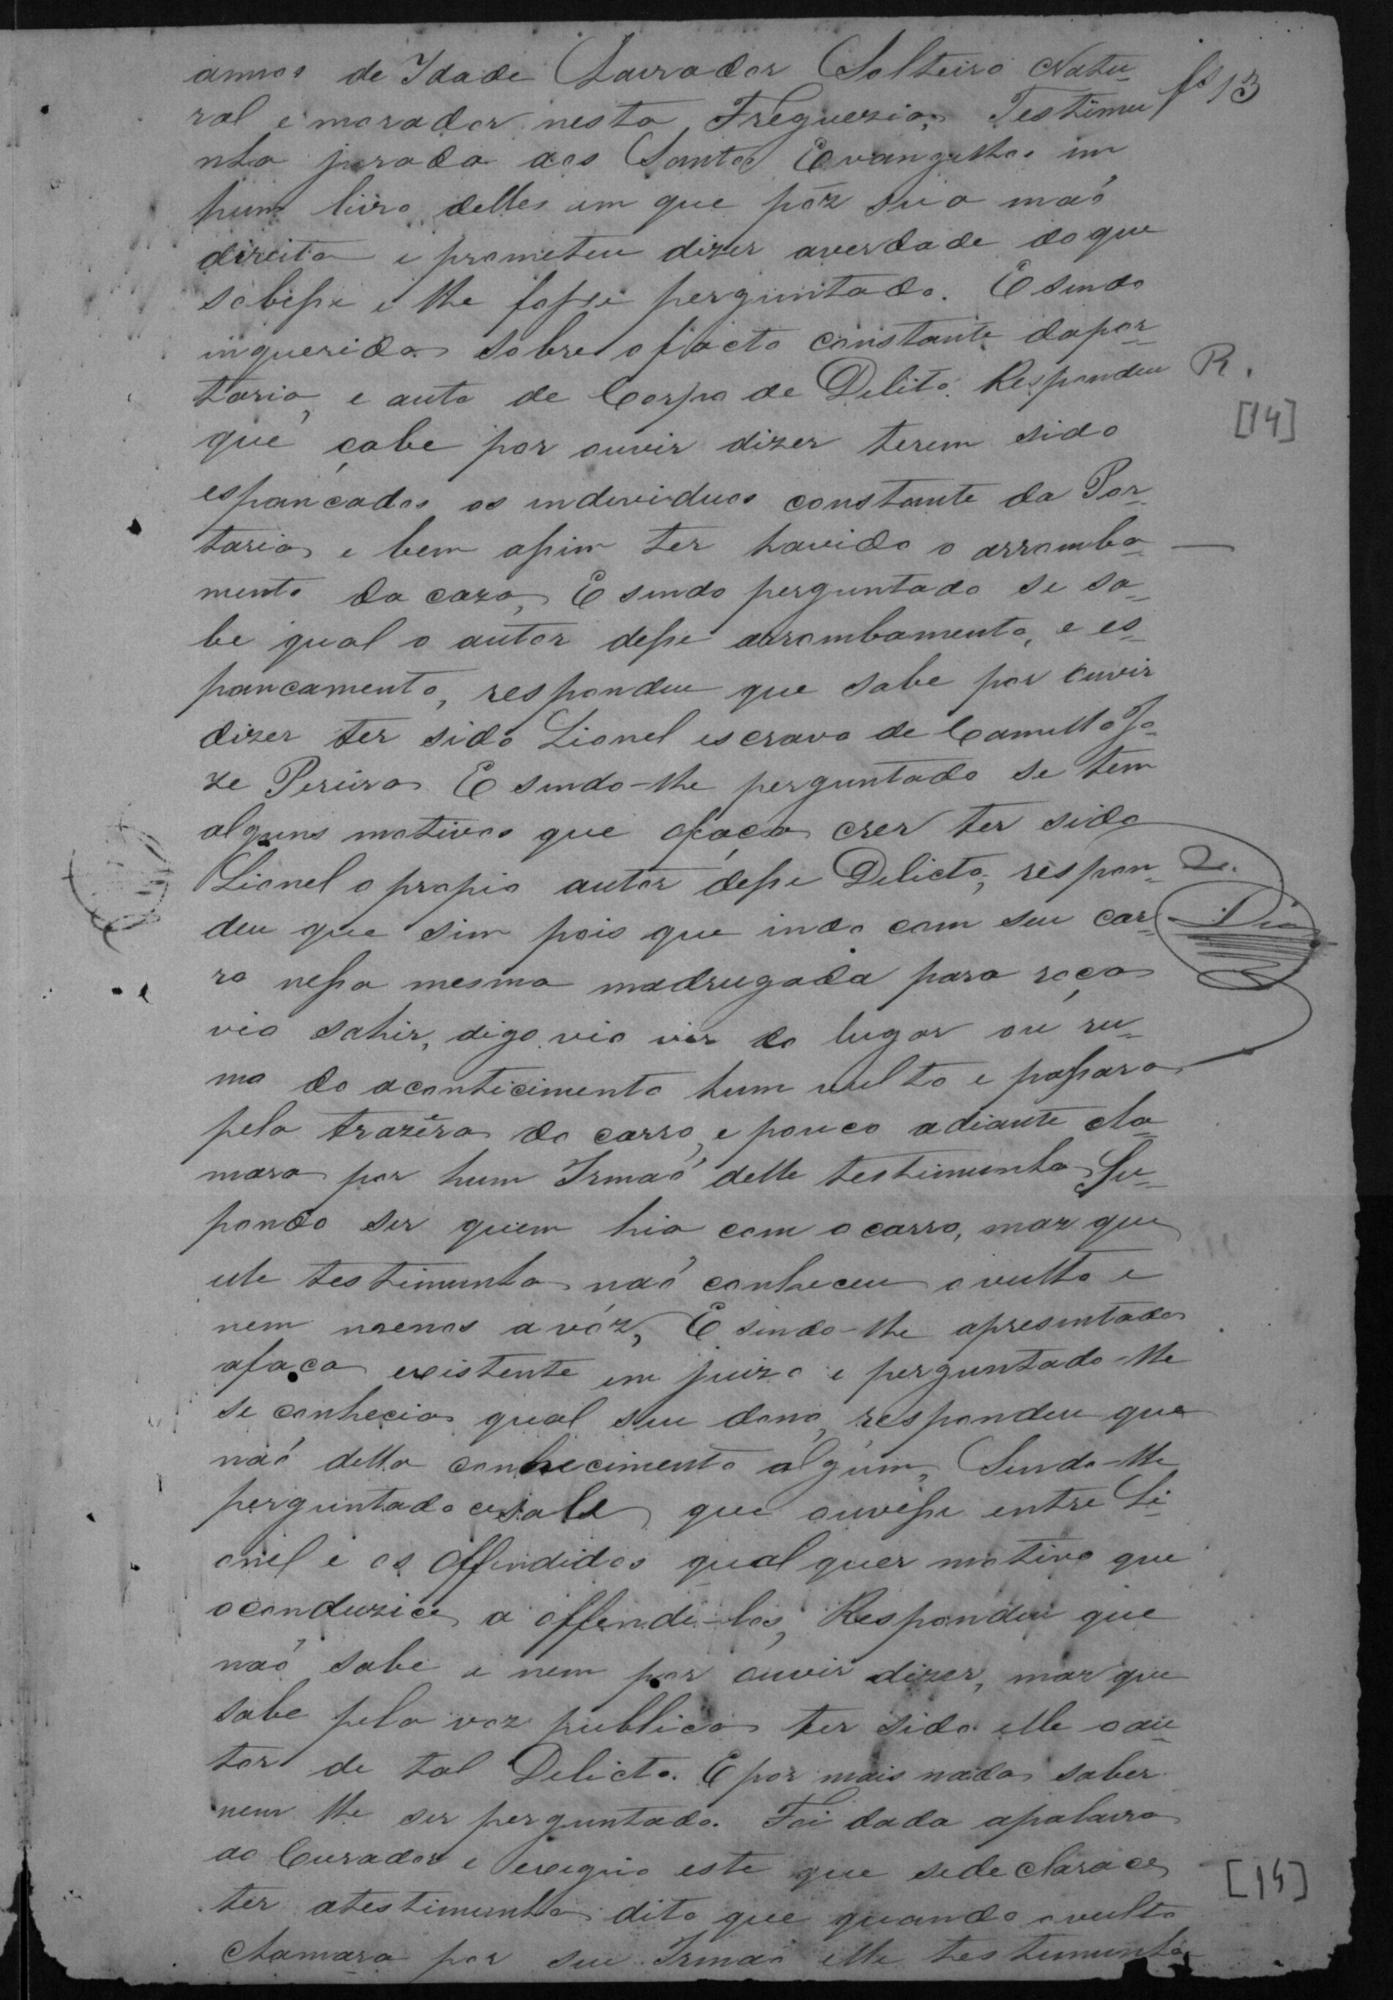 annos de Idade Lavrador Solteiro Natu-
fs 13
ral e morador nesta Freguezia, Testimu
nha jurada aos Santos Evangelhos im
hum livro delles em que pôz sua maõ
direita e prometeu dizer averdade doque
sobesse e lhe fosse perguntado. E sendo
inquerido sobre ofacto constante dapor-
taria, e auto de Corpo de Delito. Respondeu
R.
[14]
que çabe por ouvir dizer terem sido
espancados os individuos constante da Por-
taria e bem assim ter havido o arromba-
mento da caza, E sendo perguntado se sa-
be qual o autor desse arrombamento, e es-
pancamento, respondeu que sabe por ouvir
dizer ter sido Lionel escravo de Camillo Jo-
ze Pereira E sendo-lhe perguntado se tem
alguns motivos que ofaça crer ter sido
Lionel o propio autor desse Delicto, respon-
deu que sim pois que indo com seu car-
ro nessa mesma madrugada para roça
vio sahir, digo vio vir do lugar ou ru-
mo do aconticimento hum vulto e passara
pela trazêra do carro, e pouco adiante cha-
mara por hum Irmaõ delle testimunha Su-
pondo ser quem hia com ocarro, maz que
ele testimunha naõ conheceu ovulto e
nem menos a vóz, E sendo-lhe apresentada
afaca existente em juizo e perguntado-lhe
se conhecia qual seu dono, respondeu que
naõ della conhecimento algum, Sendo-lhe
perguntado ce sabe que ouvesse entre Li-
onel e os Offendidos qual quer motivo que
oconduzice a offendi-los, Respondeu que
naõ sabe e nem por ouvir dizer, maz que
sabe pela voz publica ter sido elle oau-
tor de tal Delicto. E por mais nada saber
nem lhe ser perguntado. Foi dada apalavra
ao Curador e exegiu este que sedeclarace
[15]
ter atestimunha dito que quando ovulto
chamara por seu Irmaõ elle testimunha